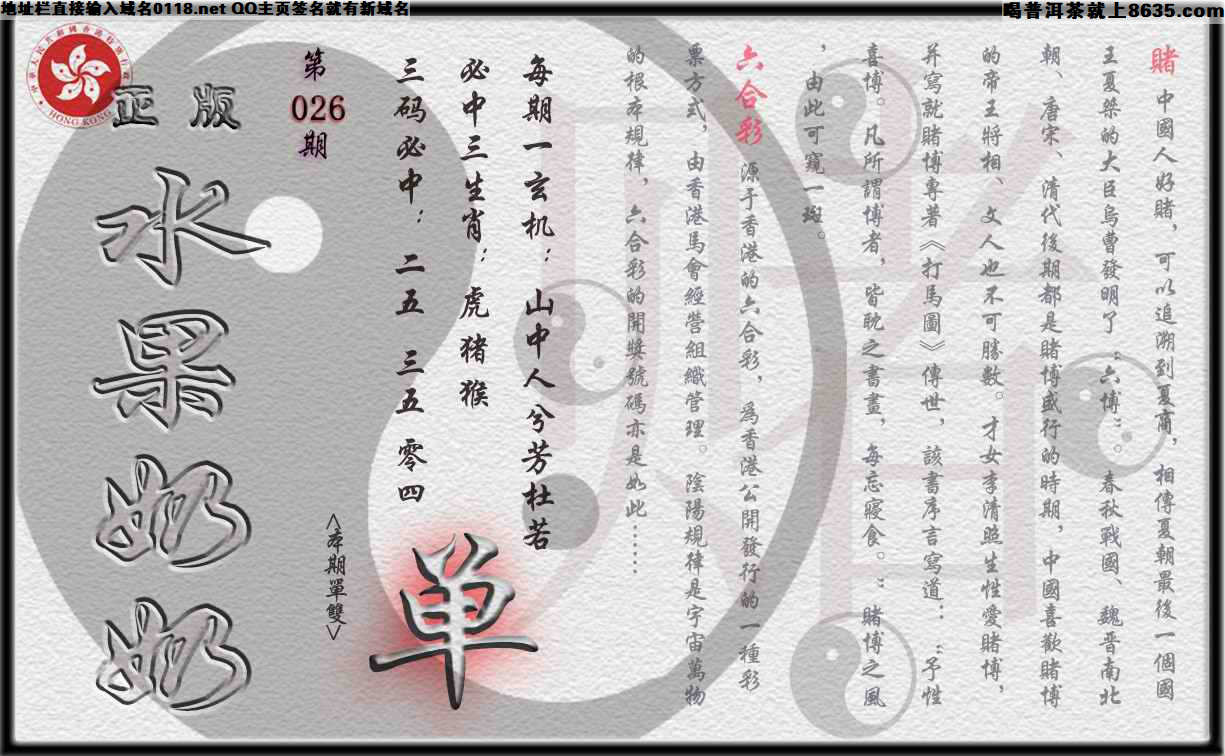 地址栏直接输入域名0118.net QQ主页签名就有新域名
喝普洱茶就上8635.com
賭 中國人好賭，可以追溯到夏商，相傳夏朝最後一個國
王夏桀的大臣烏曹發明了“六博”。春秋戰國、魏晋南北
朝、唐宋、清代後期都是賭博盛行的時期，中國喜歡賭博
的帝王將相、文人也不可勝數。才女李清照生性愛賭博，
并寫就賭博專著《打馬圖》傳世，該書序言寫道：：“予性
喜博。凡所謂博者，皆耽之書晝，每忘寢食。”賭博之風
，由此可窺一斑。
六合彩 源于香港的六合彩，爲香港公開發行的一種彩
票方式，由香港馬會經營組織管理。陰陽規律是宇宙萬物
的根本規律，六合彩的開獎號碼亦是如此……
每期一玄机：山中人兮芳杜若
必中三生肖：虎 猪 猴
三码必中：二五 三五 零四
<本期單雙>
单
第
026
期
正版
水果奶奶
HONG KONG